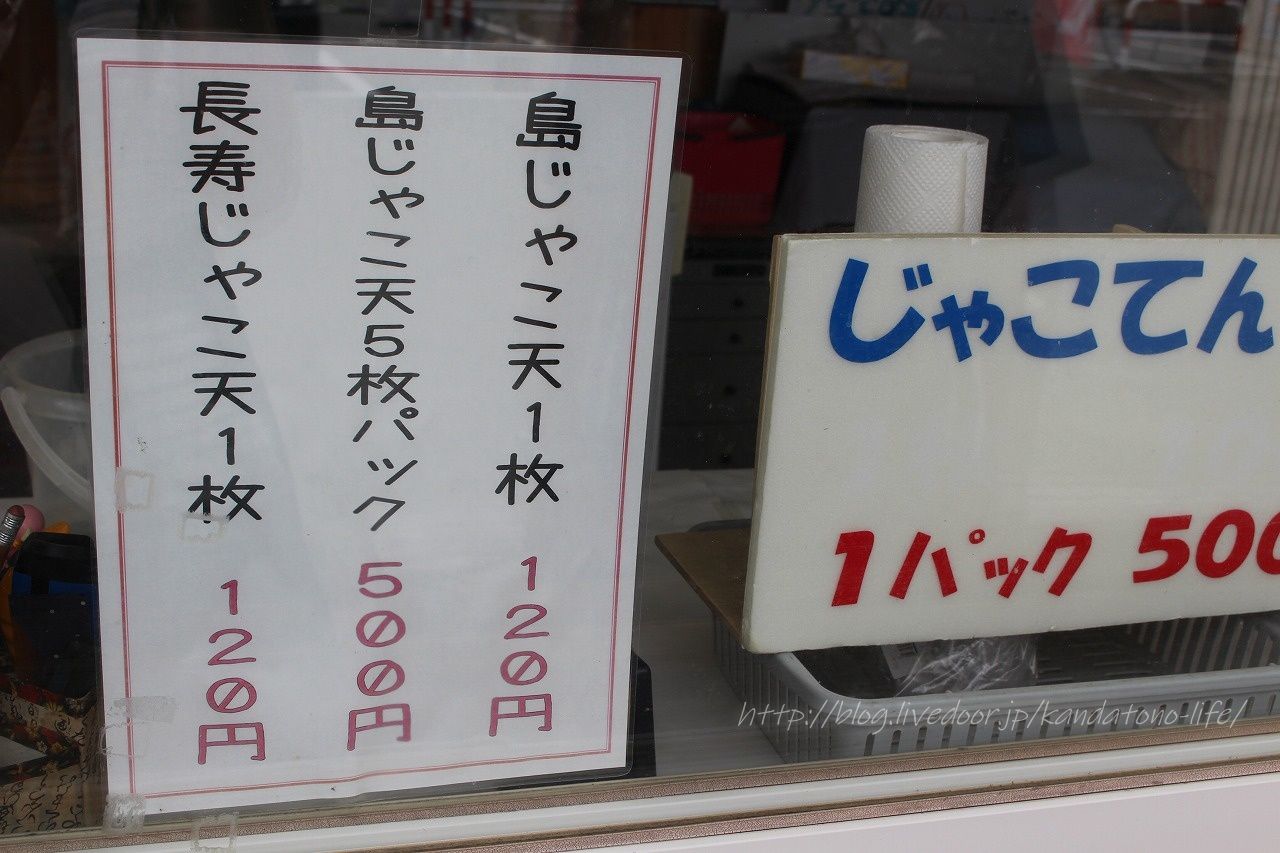 島じゃこ天1枚 120円
島じゃこ天5枚パック 500円
長寿じゃこ天1枚 120円
じゃこてん
1パック 500
http://blog.livedoor.jp/kandatono-life/